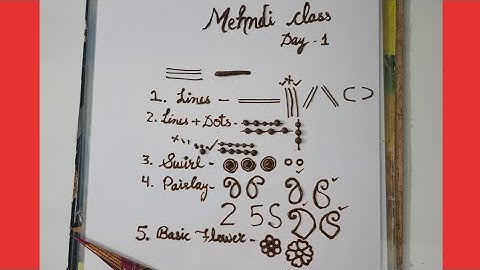 Mehndi class
Day - 1
1. Lines -
2. Lines + Dots -
3. Swirl -
4. Paizlay -
2 5 S
5. Basic Flower -